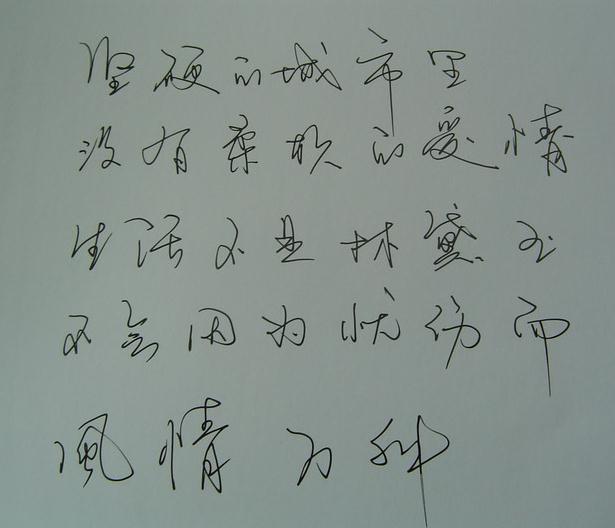 坚硬的城市里
没有柔软的爱情
生活不是林黛玉
不会因为忧伤而
風情万种